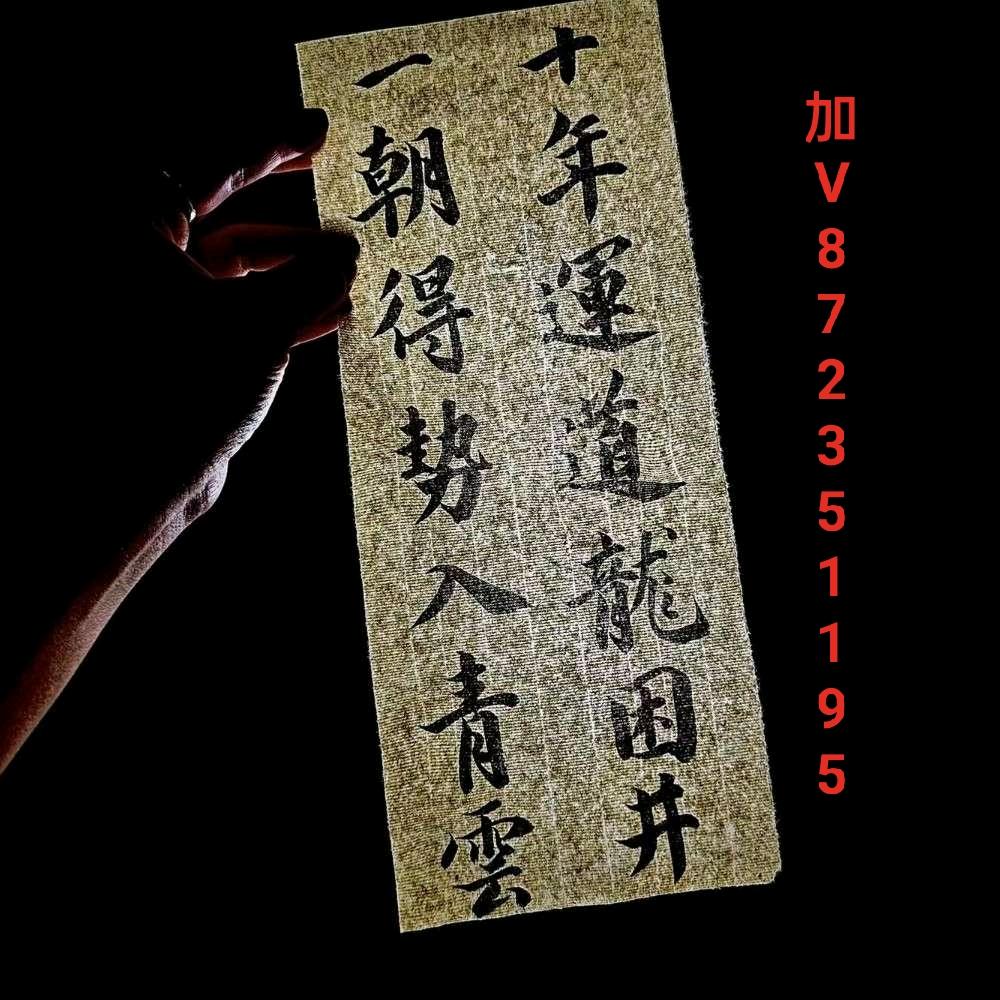 十年運道龍困井
一朝得勢入青雲
加V872351195